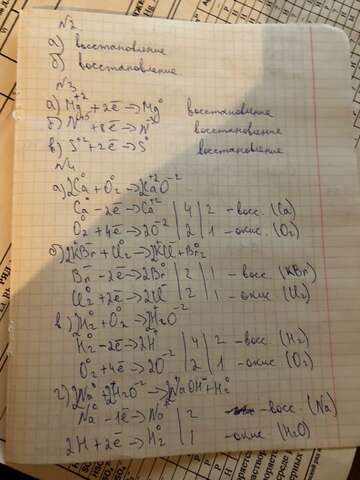 №2
а) восстановление
б) восстановление
№3
а) Mg⁺² + 2ē → Mg⁰ восстановление
б) N⁺⁵ + 8ē → N⁻³ восстановление
в) S⁺² + 2ē → S⁰ восстановление
№4
а) 2Ca⁰ + O₂⁰ → 2Ca⁺²O⁻²
Ca⁰ - 2ē → Ca⁺² | 4 | 2 - восс. (Ca)
O₂⁰ + 4ē → 2O⁻² | 2 | 1 - окис. (O₂)
б) 2KBr⁻ + Cl₂⁰ → 2KCl⁻ + Br₂⁰
Br⁻ - 2ē → 2Br⁰ | 2 | 1 - восс. (KBr)
Cl₂⁰ + 2ē → 2Cl⁻ | 2 | 1 - окис. (Cl₂)
в) 2H₂⁰ + O₂⁰ → 2H₂O⁻²
H₂⁰ - 2ē → 2H | 4 | 2 - восс. (H₂)
O₂⁰ + 4ē → 2O⁻² | 2 | 1 - окис. (O₂)
г) 2Na⁰ + 2H₂O⁻² → 2NaOH + H₂⁰
Na⁰ - 1ē → Na⁺ | 2 - восс. (Na)
2H + 2ē → H₂⁰ | 1 - окис. (H₂O)